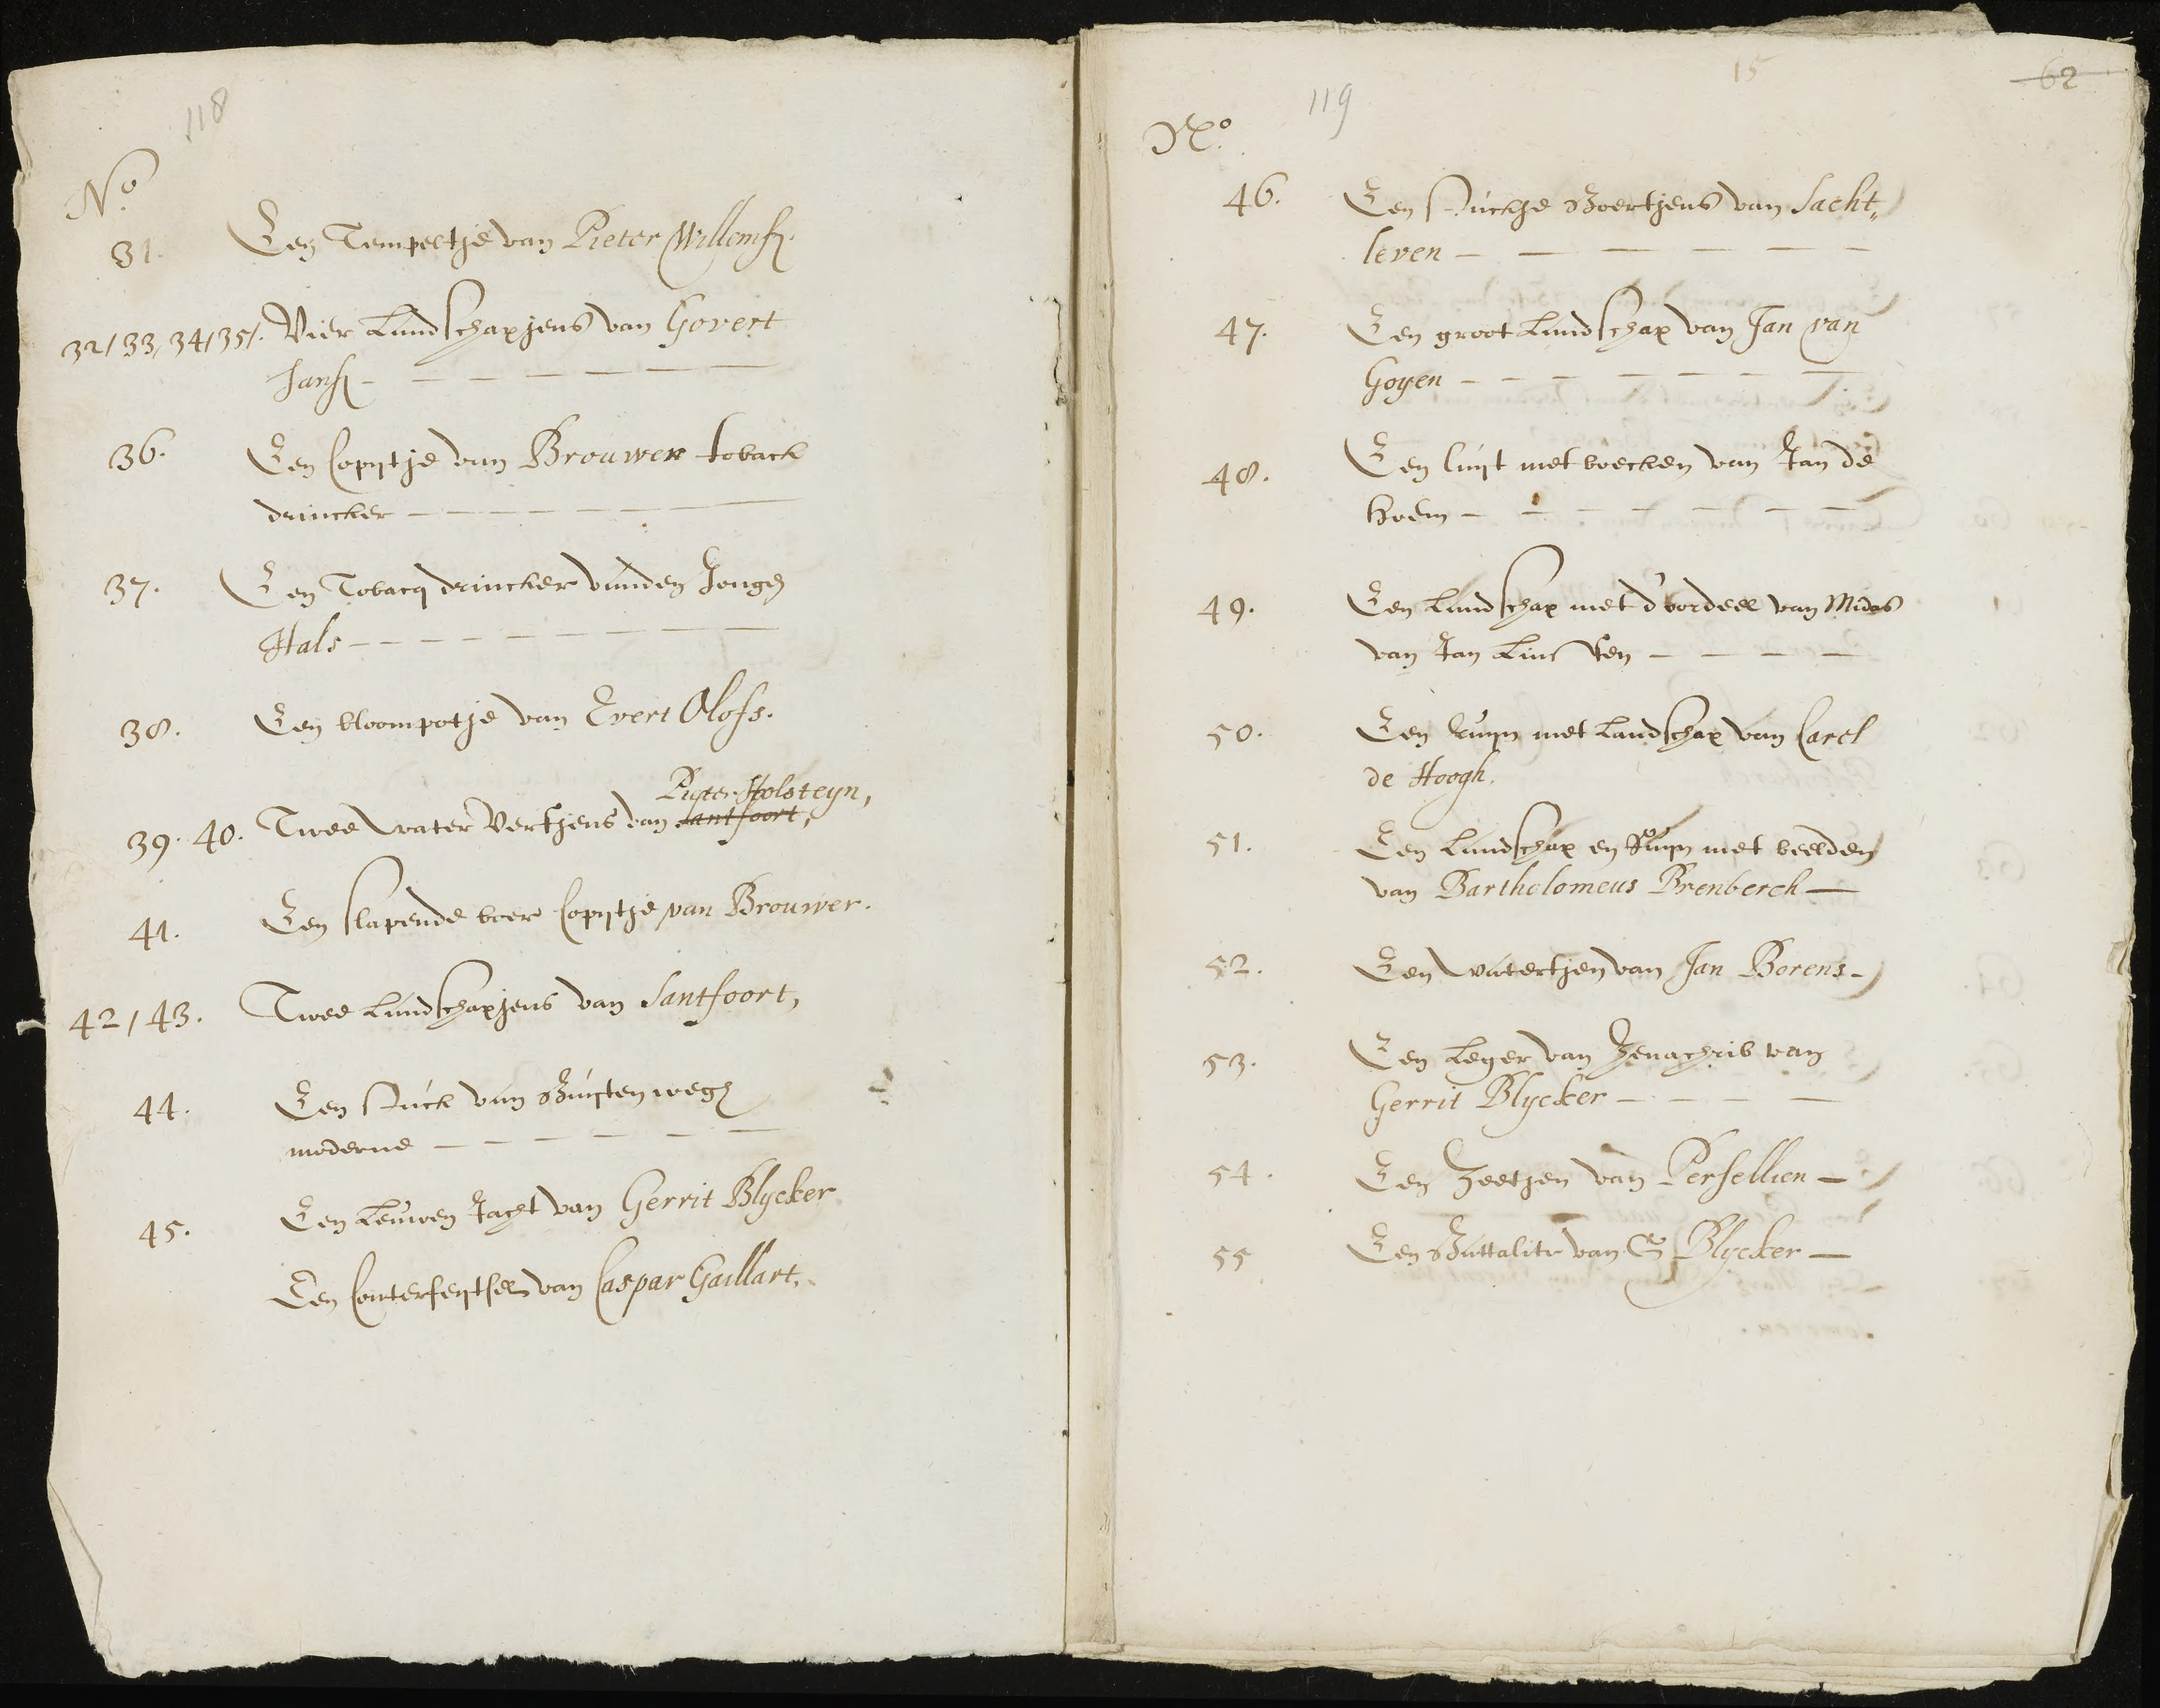 118
No.
31. Een Tempeltje van Pieter Willemsz.
32/33/34/35/. Vier Landschapjens van Govert
Jansz - - - - - - -
36. Een Copijtje van Brouwer toback
drincker - - - - - - -
37. Een Tobacq drincker vanden Jongen
Hals - - - - - - - -
38. Een bloompotje van Evert Olofs.
Pieter Holsteyn,
39. 40. Twee water Verfjens van Santfoort,
41. Een slapende boer Copijtje van Brouwer.
42/43. Twee Landschapjens van Santfoort,
44. Een stuck van Buijtenwegh
moderne - - - - - -
45. Een Leuwen Jacht van Gerrit Blycker
Een Conterfeijtsel van Caspar Gaillart,
15
62
119
No.
46. Een stuckje Boertjens van Sacht,,
leven - - - - - -
47. Een groot Landschap van Jan van
Goyen - - - - - - -
48. Een luijt met boecken van Jan de
Heem - - - - - - -
49. Een Landschap met d'oordeel van Midas
van Jan Linsen - - - -
50. Een Ruijn met Landschap van Carel
de Hoogh.
51. Een Landschap en Ruijn met beelden
van Bartholomeus Brenberch -
52. Een watertjen van Jan Borens -
53. Een Leger van Zenacherib van
Gerrit Blycker - - - -
54. Een Zeetjen van Persellien -
55 Een Battalitr van G Blycker -